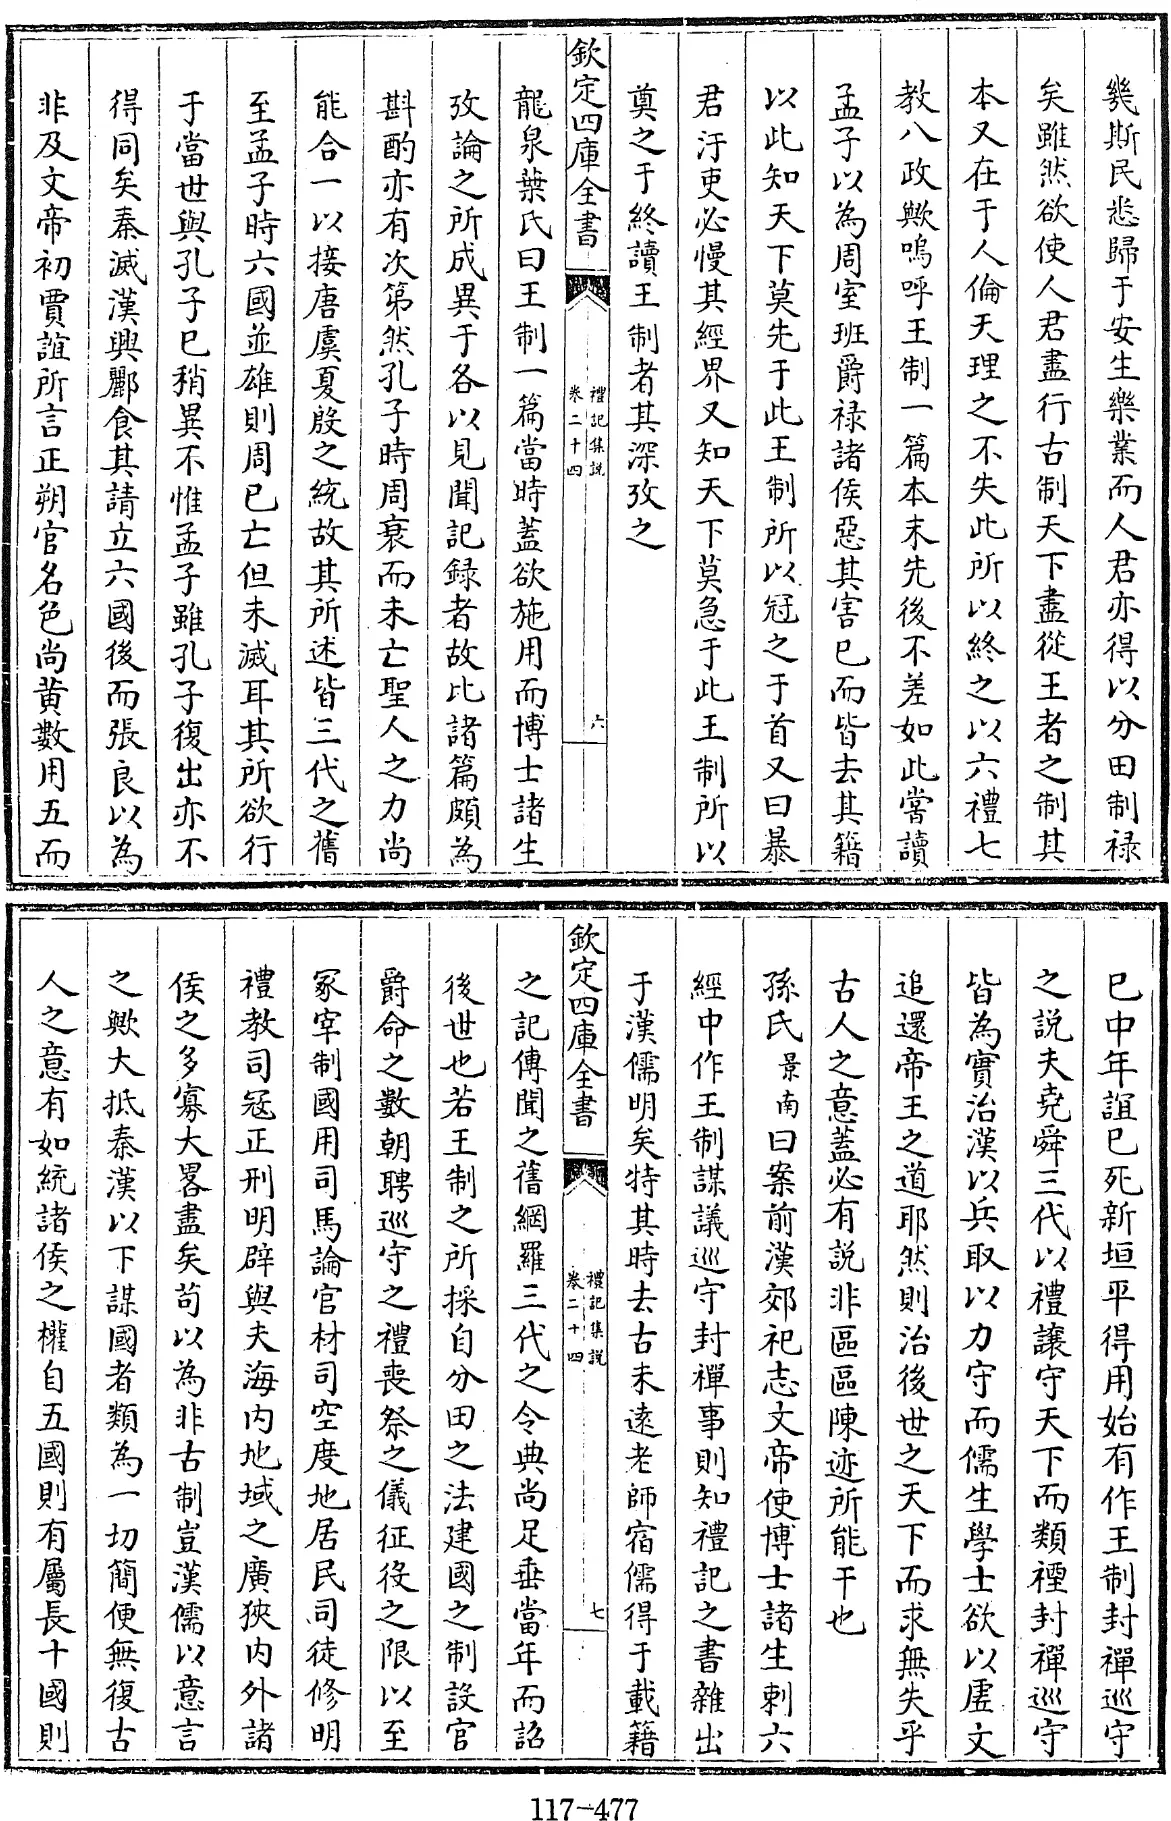 幾斯民悉歸于安生樂業而人君亦得以分田制禄
矣雖然欲使人君盡行古制天下盡從王者之制其
本又在于人倫天理之不失此所以終之以六禮七
教八政歟嗚呼王制一篇本末先後不差如此嘗讀
孟子以為周室班爵禄諸侯惡其害已而皆去其籍
以此知天下莫先于此王制所以冠之于首又曰暴
君汙吏必慢其經界又知天下莫急于此王制所以
奠之于終讀王制者其深攷之
欽定四庫全書
禮記集說
卷二十四
六
龍泉葉氏曰王制一篇當時蓋欲施用而博士諸生
攷論之所成異于各以見聞記録者故比諸篇頗為
斟酌亦有次第然孔子時周衰而未亡聖人之力尚
能合一以接唐虞夏殷之統故其所述皆三代之舊
至孟子時六國並雄則周已亡但未滅耳其所欲行
于當世與孔子已稍異不惟孟子雖孔子復出亦不
得同矣秦滅漢興酈食其請立六國後而張良以為
非及文帝初賈誼所言正朔官名色尚黄數用五而
已中年誼已死新垣平得用始有作王制封禪巡守
之說夫堯舜三代以禮讓守天下而類禋封禪巡守
皆為實治漢以兵取以力守而儒生學士欲以虛文
追還帝王之道耶然則治後世之天下而求無失乎
古人之意蓋必有説非區區陳迹所能干也
孫氏景南曰案前漢郊祀志文帝使博士諸生刺六
經中作王制謀議巡守封禪事則知禮記之書雜出
于漢儒明矣特其時去古未遠老師宿儒得于載籍
欽定四庫全書
禮記集說
卷二十四
七
之記傳聞之舊網羅三代之令典尚足垂當年而詔
後世也若王制之所採自分田之法建國之制設官
爵命之數朝聘巡守之禮喪祭之儀征役之限以至
冢宰制國用司馬論官材司空度地居民司徒修明
禮教司冦正刑明辟與夫海内地域之廣狹内外諸
侯之多寡大畧盡矣苟以為非古制豈漢儒以意言
之歟大抵秦漢以下謀國者類為一切簡便無復古
人之意有如統諸侯之權自五國則有屬長十國則
117-477